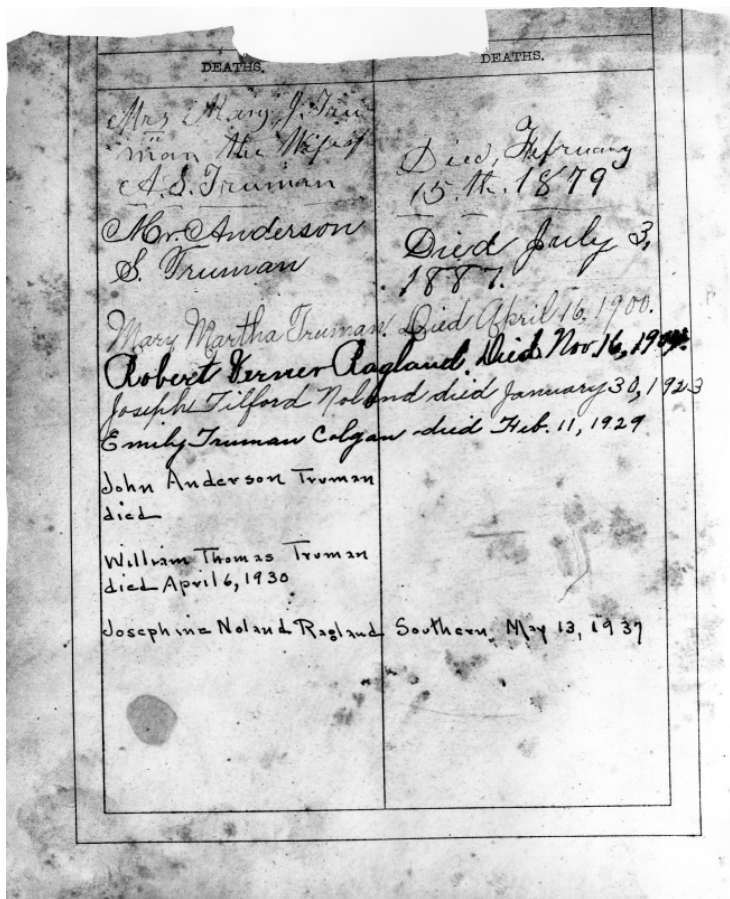 DEATHS.
DEATHS.
Mrs Mary J. Tru
man the Wife of
A. S. Truman
Died, February
15.th. 1879
Mr. Anderson
S. Truman
Died July 3,
1887.
Mary Martha Truman. Died April 16, 1900.
Robert Verner Ragland. Died Nov. 16,
Joseph Tilford Noland died January 30, 1923
Emily Truman Colgan died Feb. 11, 1929
John Anderson Truman
died
William Thomas Truman
died April 6, 1930
Josephine Noland Ragland Southern. May 13, 1937